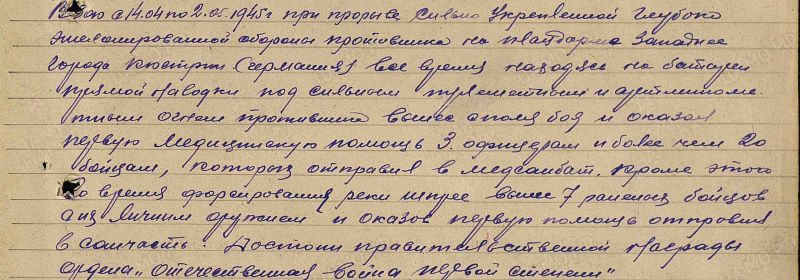 В бою с 14.04 по 2.05.1945г при прорыве сильно укрепленной глубоко
эшелонированной обороны противника на плацдарме западнее
города Кюстрин (Германия) все время находясь на батареи
прямой наводки под сильным пулеметным и артилломе-
тным огнем противника вынес с поля боя и оказал
первую медицинскую помощь 3. офицерам и более чем 20
бойцам, которых отправил в медсанбат. Кроме этого
во время форсирования реки Шпрее вынес 7 раненых бойцов
с их личным оружием и оказав первую помощь отправил
в санчасть. Достоин правительственной награды
ордена „Отечественная война первой степени"